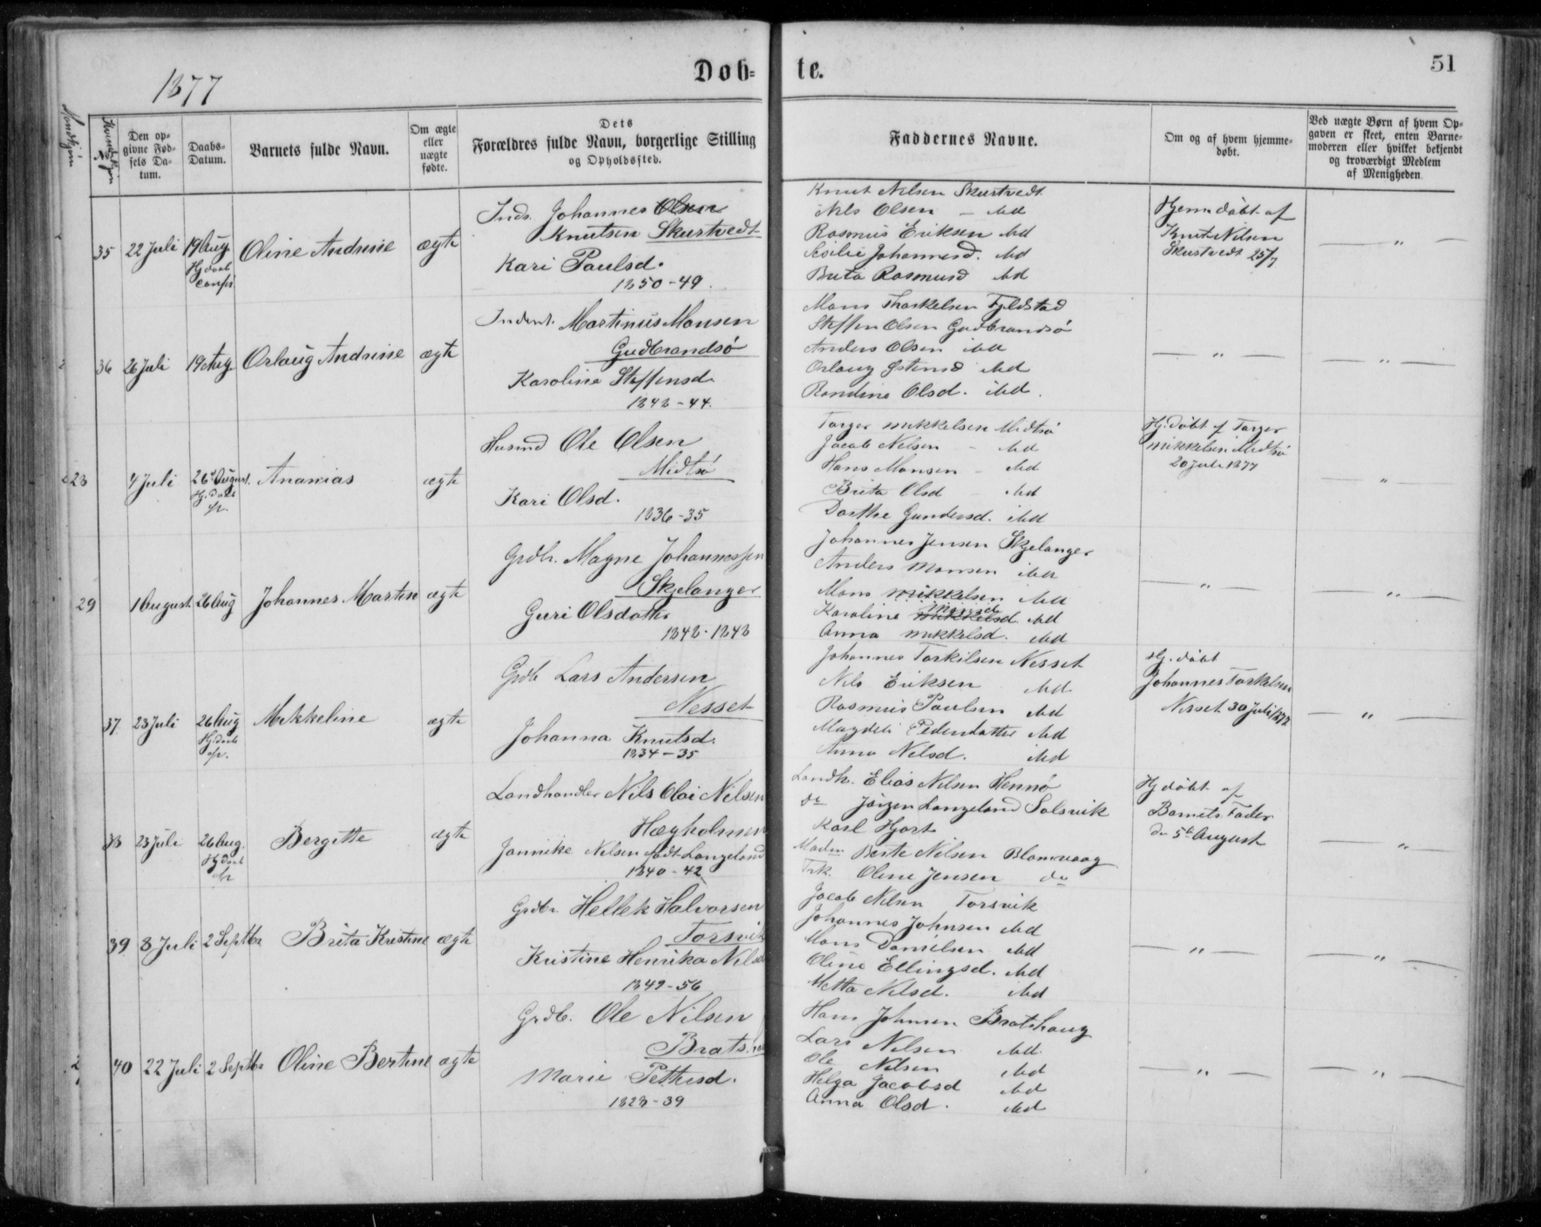 1877
Døb-
te.
51
Mandkjøn
Kvindekjøn
Den op-
givne Fød-
sels Da-
tum.
Daabs-
Datum.
Barnets fulde Navn.
Om ægte
eller
uægte
fødte.
Dets
Forældres fulde Navn, borgerlige Stilling
og Opholdssted.
Faddernes Navne.
Om og af hvem hjemme-
døbt.
Ved uægte Børn af hvem Op-
gaven er skeet, enten Barne-
moderen eller hvilket bekjendt
og troværdigt Medlem
af Menigheden.
35 22 Juli 19 Aug Oline Andrine ægte
Inds. Johannes Olsen
Knutsen Skurtvedt
Kari Paulsd.
1850-49.
Knut Nilsen Skurtvedt
Nils Olsen - ibd
Rasmus Eriksen ibd
Johannesd. ibd
Brita Rasmusd ibd
Hjemdøbt af
Knut Nilsen
Skurtvedt 25/7
— " —
36 26 Juli 19 Aug Orlaug Andrine ægte
Martinus Monsen
Gudbrandsø
Karolina Steffensd.
1843-44.
Mons Thorkelsen Fjeldstad
Steffen Olsen Gudbrandsø
Anders Olsen ibd
Orlaug ibd
Randina Olsd. ibd.
— " —
— " —
28 4 Juli 26 August. Ananias ægte
Husmd Ole Olsen
Midtsø
Kari Olsd.
1836-35
Torger Mikkelsen Midtsø
Jacob Nilsen - ibd
Hans Monsen - ibd
Brita Olsd - ibd
Dorthe Gundersd. ibd
Hj. døbt af Torger
Mikkelsen Midtsø
20 Juli 1877
— " —
29 1 August 26 Aug Johannes Martin ægte
Grdbr. Magne Johannessen
Skjelanger
Guri Olsdatter
1843-1843
Johannes Jensen Skjelanger
Anders Monsen ibd
Mons Mikkelsen ibd
Monsd
Karoline Mikkelsd. ibd
Anna Mikkelsd. ibd
— " —
— " —
37 23 Juli 26 Aug Mikkeline ægte
Grdb Lars Andersen
Nesset
Johanna Knutsd.
1834-35
Johannes Torkilsen Nesset
Nils Eriksen ibd
Rasmus Paulsen ibd
Magdeli Pedersdatter ibd
Anna Nilsd. ibd
Hj. døbt
Johannes Torkelsen
Nesset 30 Juli 1877
— " —
38 23 Juli 26 Aug. Bergitte ægte
Landhandler Nils Olai Nilsen
Hægholmen
Jannike Nilsen født Langeland
1840-42
Landh. Elias Nilsen Hennø
do Jørgen Langeland Solsvik
Karl Hjort
Madm Berte Nilsen Blomvaag
Frk. Oline Jensen do
Hj døbt af
Barnets Fader
d. 5te August
— " —
39 8 Juli 2 Septbr Brita Kristine ægte
Grdbr. Hellek Halvorsen
Torsvik
Kristine Henrika Nilsd
1849-56
Jacob Nilsen Torsvik
Johannes Johnsen ibd
Mons Danielsen ibd
Oline Ellingsd. ibd
Metta Nilsd. ibd
— " —
— " —
40 22 Juli 2 Septbr Oline Bertine ægte
Grdb. Ole Nilsen
Marie Pettersd.
1828-39
Hans Johnsen Bratshaug
Lars Nilsen ibd
Ole Nilsen ibd
Helga Jacobsd ibd
Anna Olsd. ibd
— " —
— " —